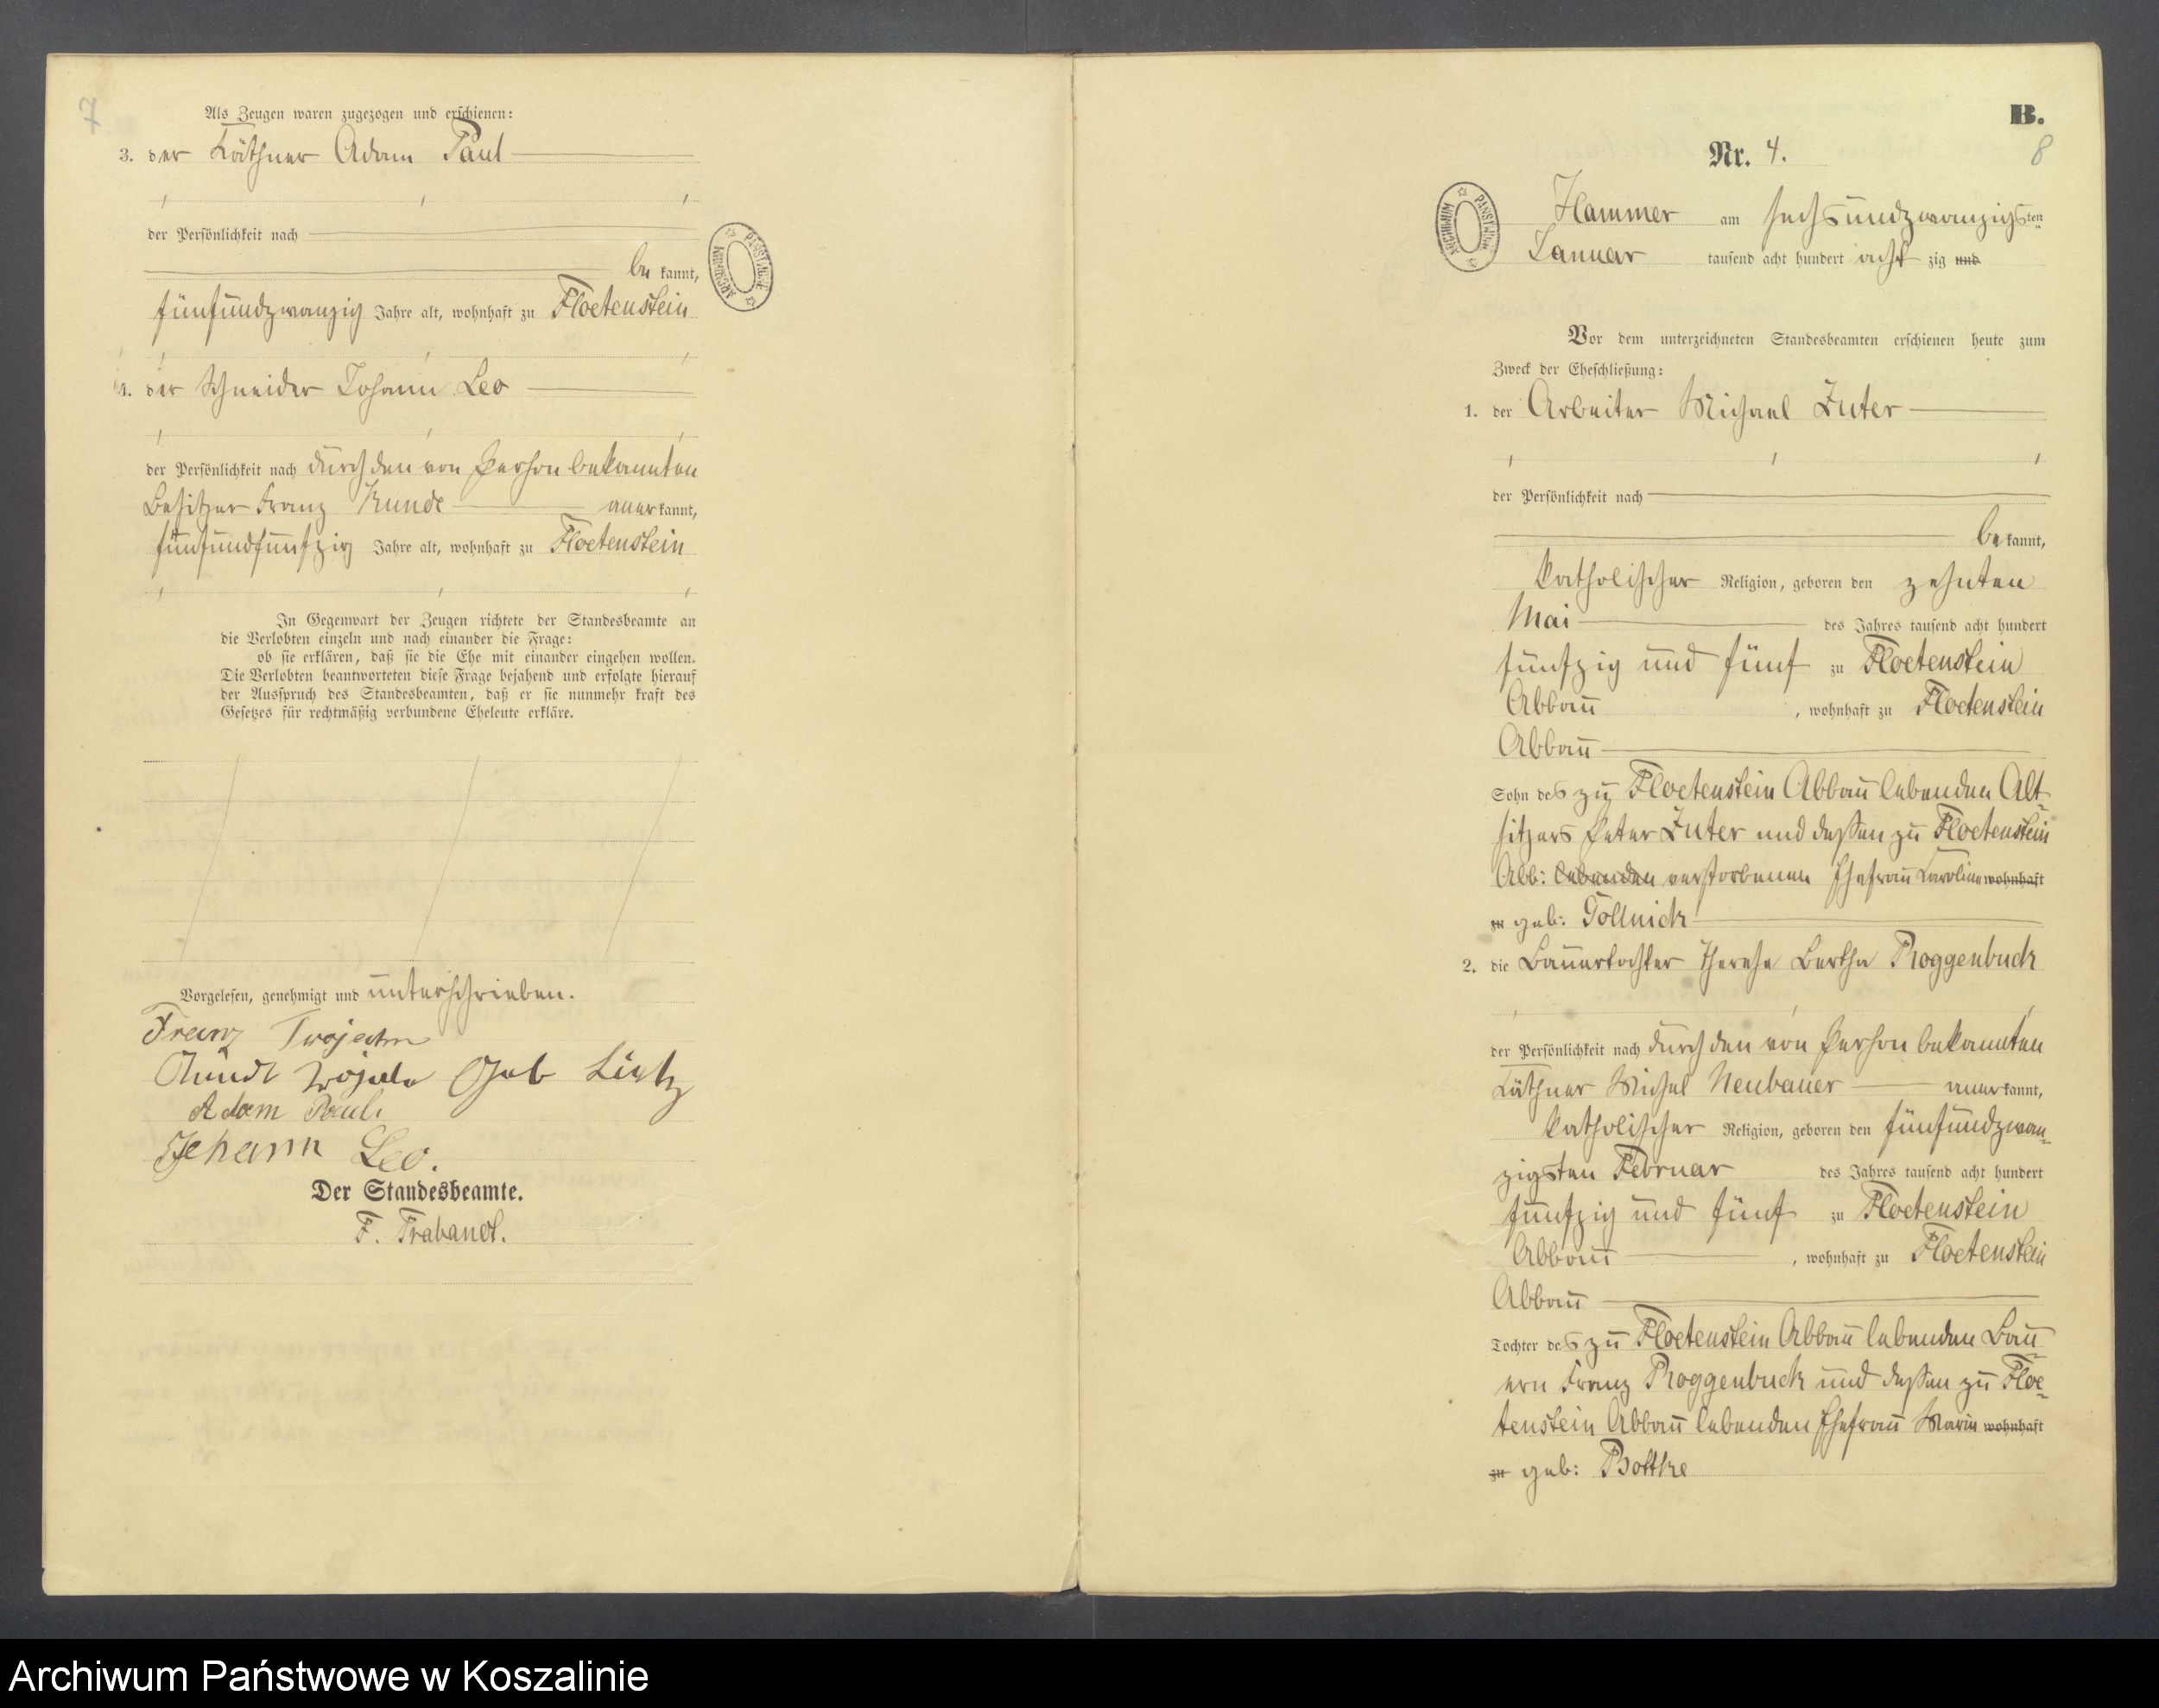 7
Als Zeugen waren zugezogen und erschienen:
3. der Käthner Adam Paul
der Persönlichkeit nach
be kannt,
fünfundzwanzig Jahre alt, wohnhaft zu Floetenstein
4. der Schneider Johann Leo
der Persönlichkeit nach durch den von Person bekannten
Besitzer Franz Kunde aner kannt,
fünfundfünfzig Jahre alt, wohnhaft zu Floetenstein
In Gegenwart der Zeugen richtete der Standesbeamte an
die Verlobten einzeln und nach einander die Frage:
ob sie erklären, daß sie die Ehe mit einander eingehen wollen.
Die Verlobten beantworteten diese Frage bejahend und erfolgte hierauf
der Ausspruch des Standesbeamten, daß er sie nunmehr kraft des
Gesetzes für rechtmäßig verbundene Eheleute erkläre.
Vorgelesen, genehmigt und unterschrieben.
Franz
Adam Paul
Johann Leo.
Der Standesbeamte.
F. Trabandt.
B.
8
Nr. 4.
Hammer am sechsundzwanzigsten
Januar tausend acht hundert acht zig und
Vor dem unterzeichneten Standesbeamten erschienen heute zum
Zweck der Eheschließung:
1. der Arbeiter Michael Luter
der Persönlichkeit nach
be kannt,
katholischer Religion, geboren den zehnten
Mai des Jahres tausend acht hundert
fünfzig und fünf zu Floetenstein
Abbau, wohnhaft zu Floetenstein
Abbau
Sohn des zu Floetenstein Abbau lebenden Alt-
sitzers Peter Luter und dessen zu Floetenstein
Abb: lebenden verstorbenen Ehefrau Caroline wohnhaft
zu geb: Gollnick
2. die Bauertochter Therese Bertha Roggenbuck
der Persönlichkeit nach durch den von Person bekannten
Käthner Michel Neubauer aner kannt,
katholischer Religion, geboren den fünfundzwan-
zigsten Februar des Jahres tausend acht hundert
fünfzig und fünf zu Floetenstein
Abbau, wohnhaft zu Floetenstein
Abbau
Tochter des zu Floetenstein Abbau lebenden Bau-
ern Franz Roggenbuck und dessen zu Floe-
tenstein Abbau lebenden Ehefrau Marie wohnhaft
zu geb: Bottke
Archiwum Państwowe w Koszalinie